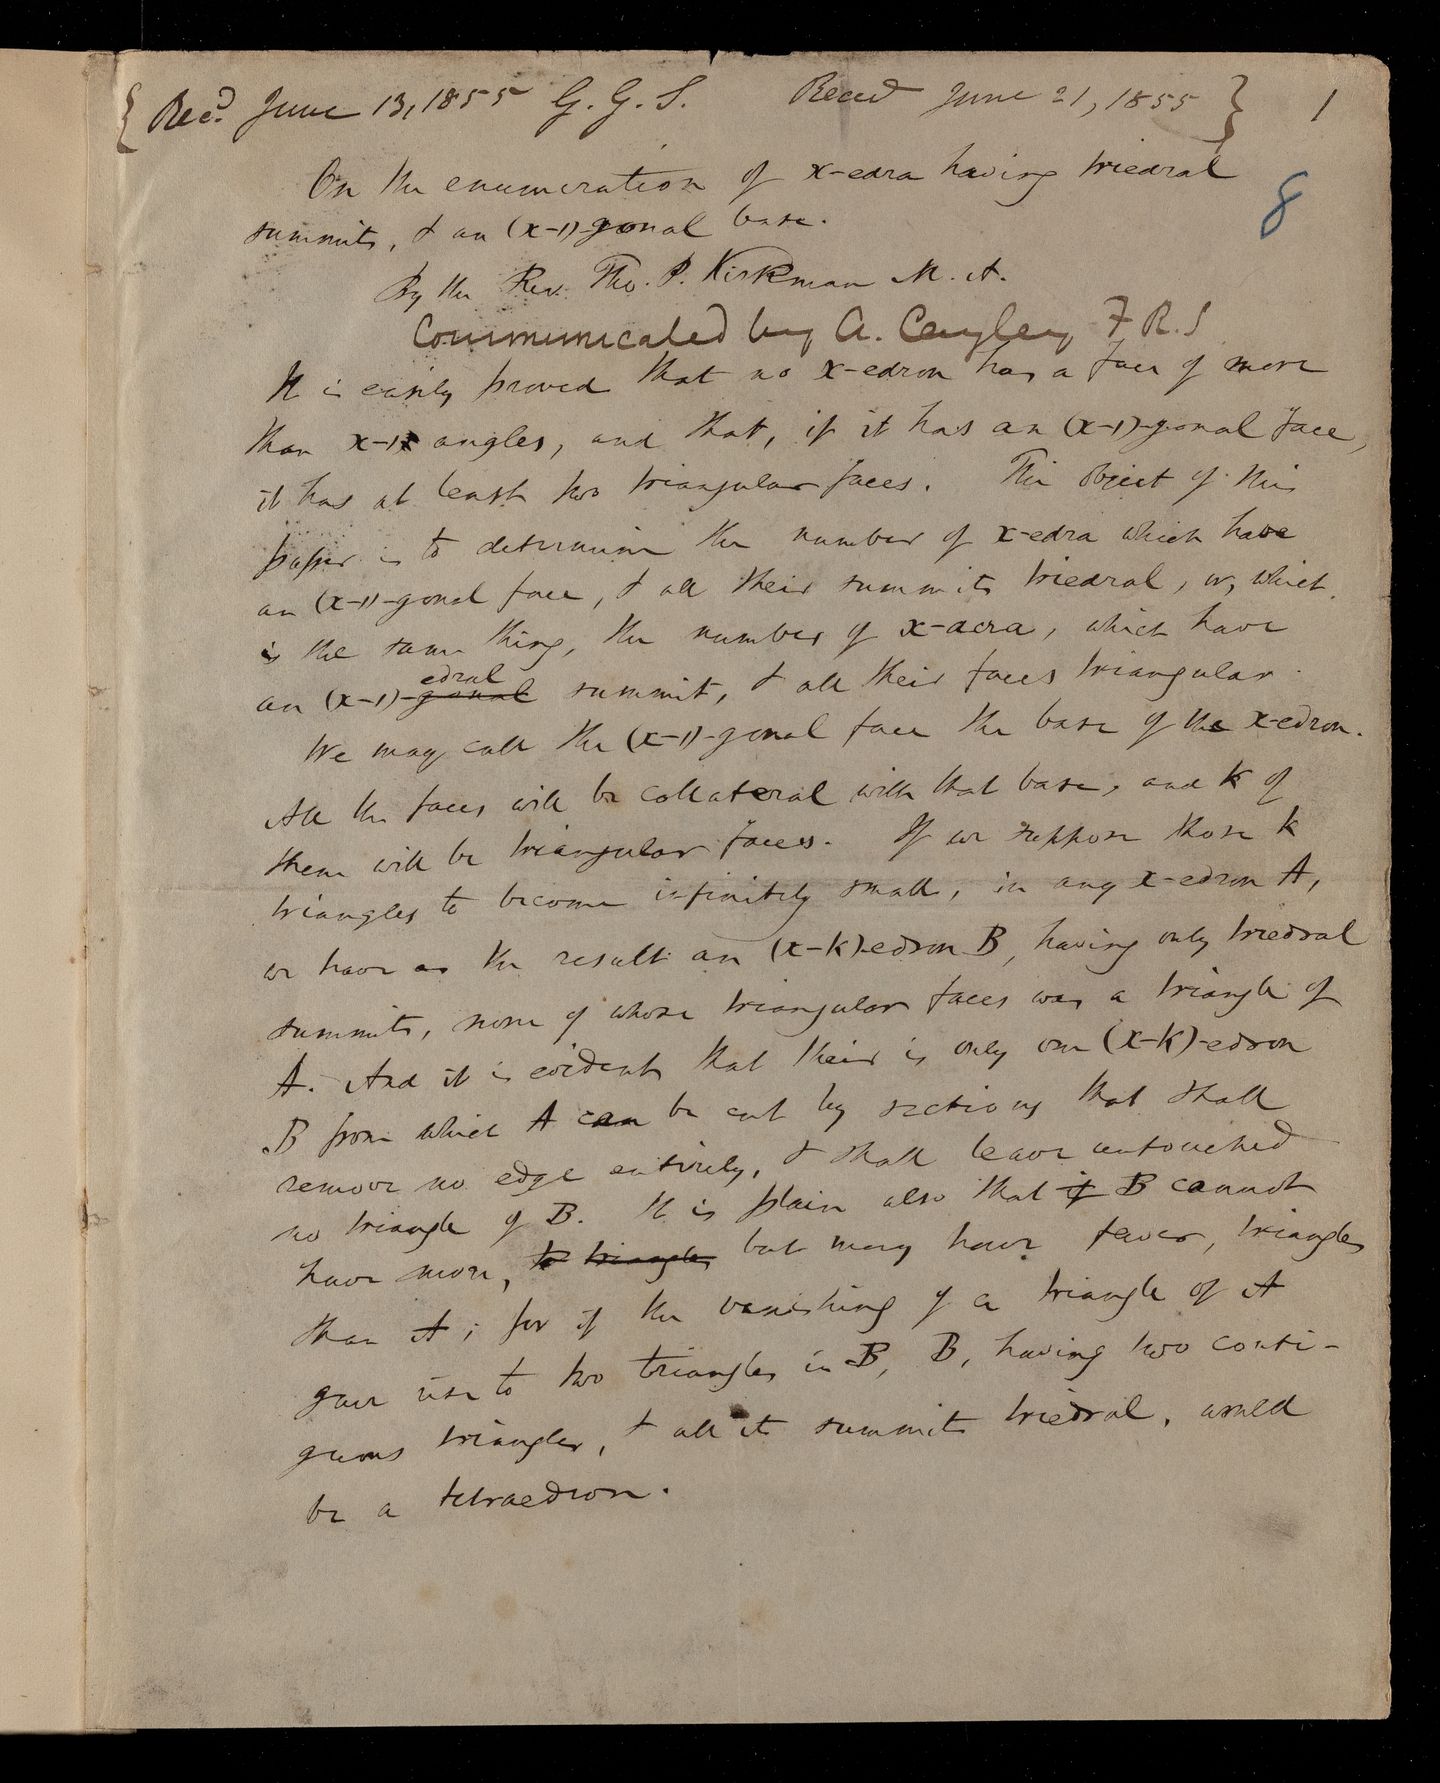 {Rec.d June 13, 1855 G. G. S. Recd June 21, 1855} 1
On the enumeration of x-edra having triedral
8
summits, & an (x-1)-gonal base.
By the Rev. Tho. P. Kirkman M.A.
Communicated by A. Cayley F.R.S
It is easily proved that no x-edron has a face of more
than x-1 angles, and that, if it has an (x-1)-gonal face,
it has at least two triangular faces. The object of this
paper is to determine the number of x-edra which have
an (x-1)-gonal face, & all their summits triedral, or, which
is the same thing, the number of x-acra, which have
an (x-1)-gonal edral summit, & all their faces triangular.
We may call the (x-1)-gonal face the base of the x-edron.
All the faces will be collateral with that base, and k of
them will be triangular faces. If we suppose those k
triangles to become infinitely small, in any x-edron A,
we have as the result an (x-k)-edron B, having only triedral
summits, none of whose triangular faces was a triangle of
A. And it is evident that their is only one (x-k)-edron
B from which A can be cut by sections that shall
remove no edge entirely, & shall leave untouched
no triangle of B. It is plain also that if B cannot
have more, to triangles but may have fewer, triangles
than A; for if the vanishing of a triangle of A
gave rise to two triangles in B, B, having two conti-
guous triangles, & all its summits triedral, would
be a tetraedron.